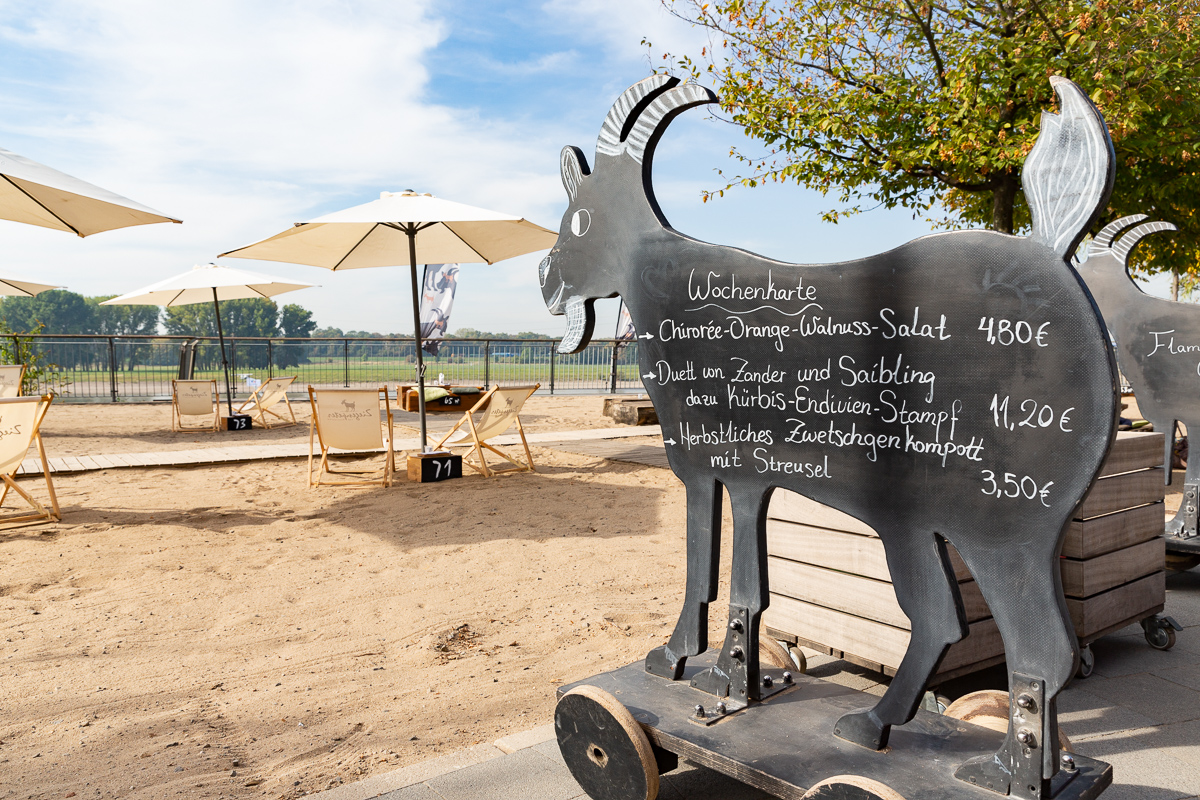 Wochenkarte
→ Chirorée-Orange-Walnuss-Salat 4,80 €
→ Duett von Zander und Saibling
dazu Kürbis-Endivien-Stampf 11,20 €
→ Herbstliches Zwetschgenkompott
mit Streusel 3,50 €
Flam
73
71
65